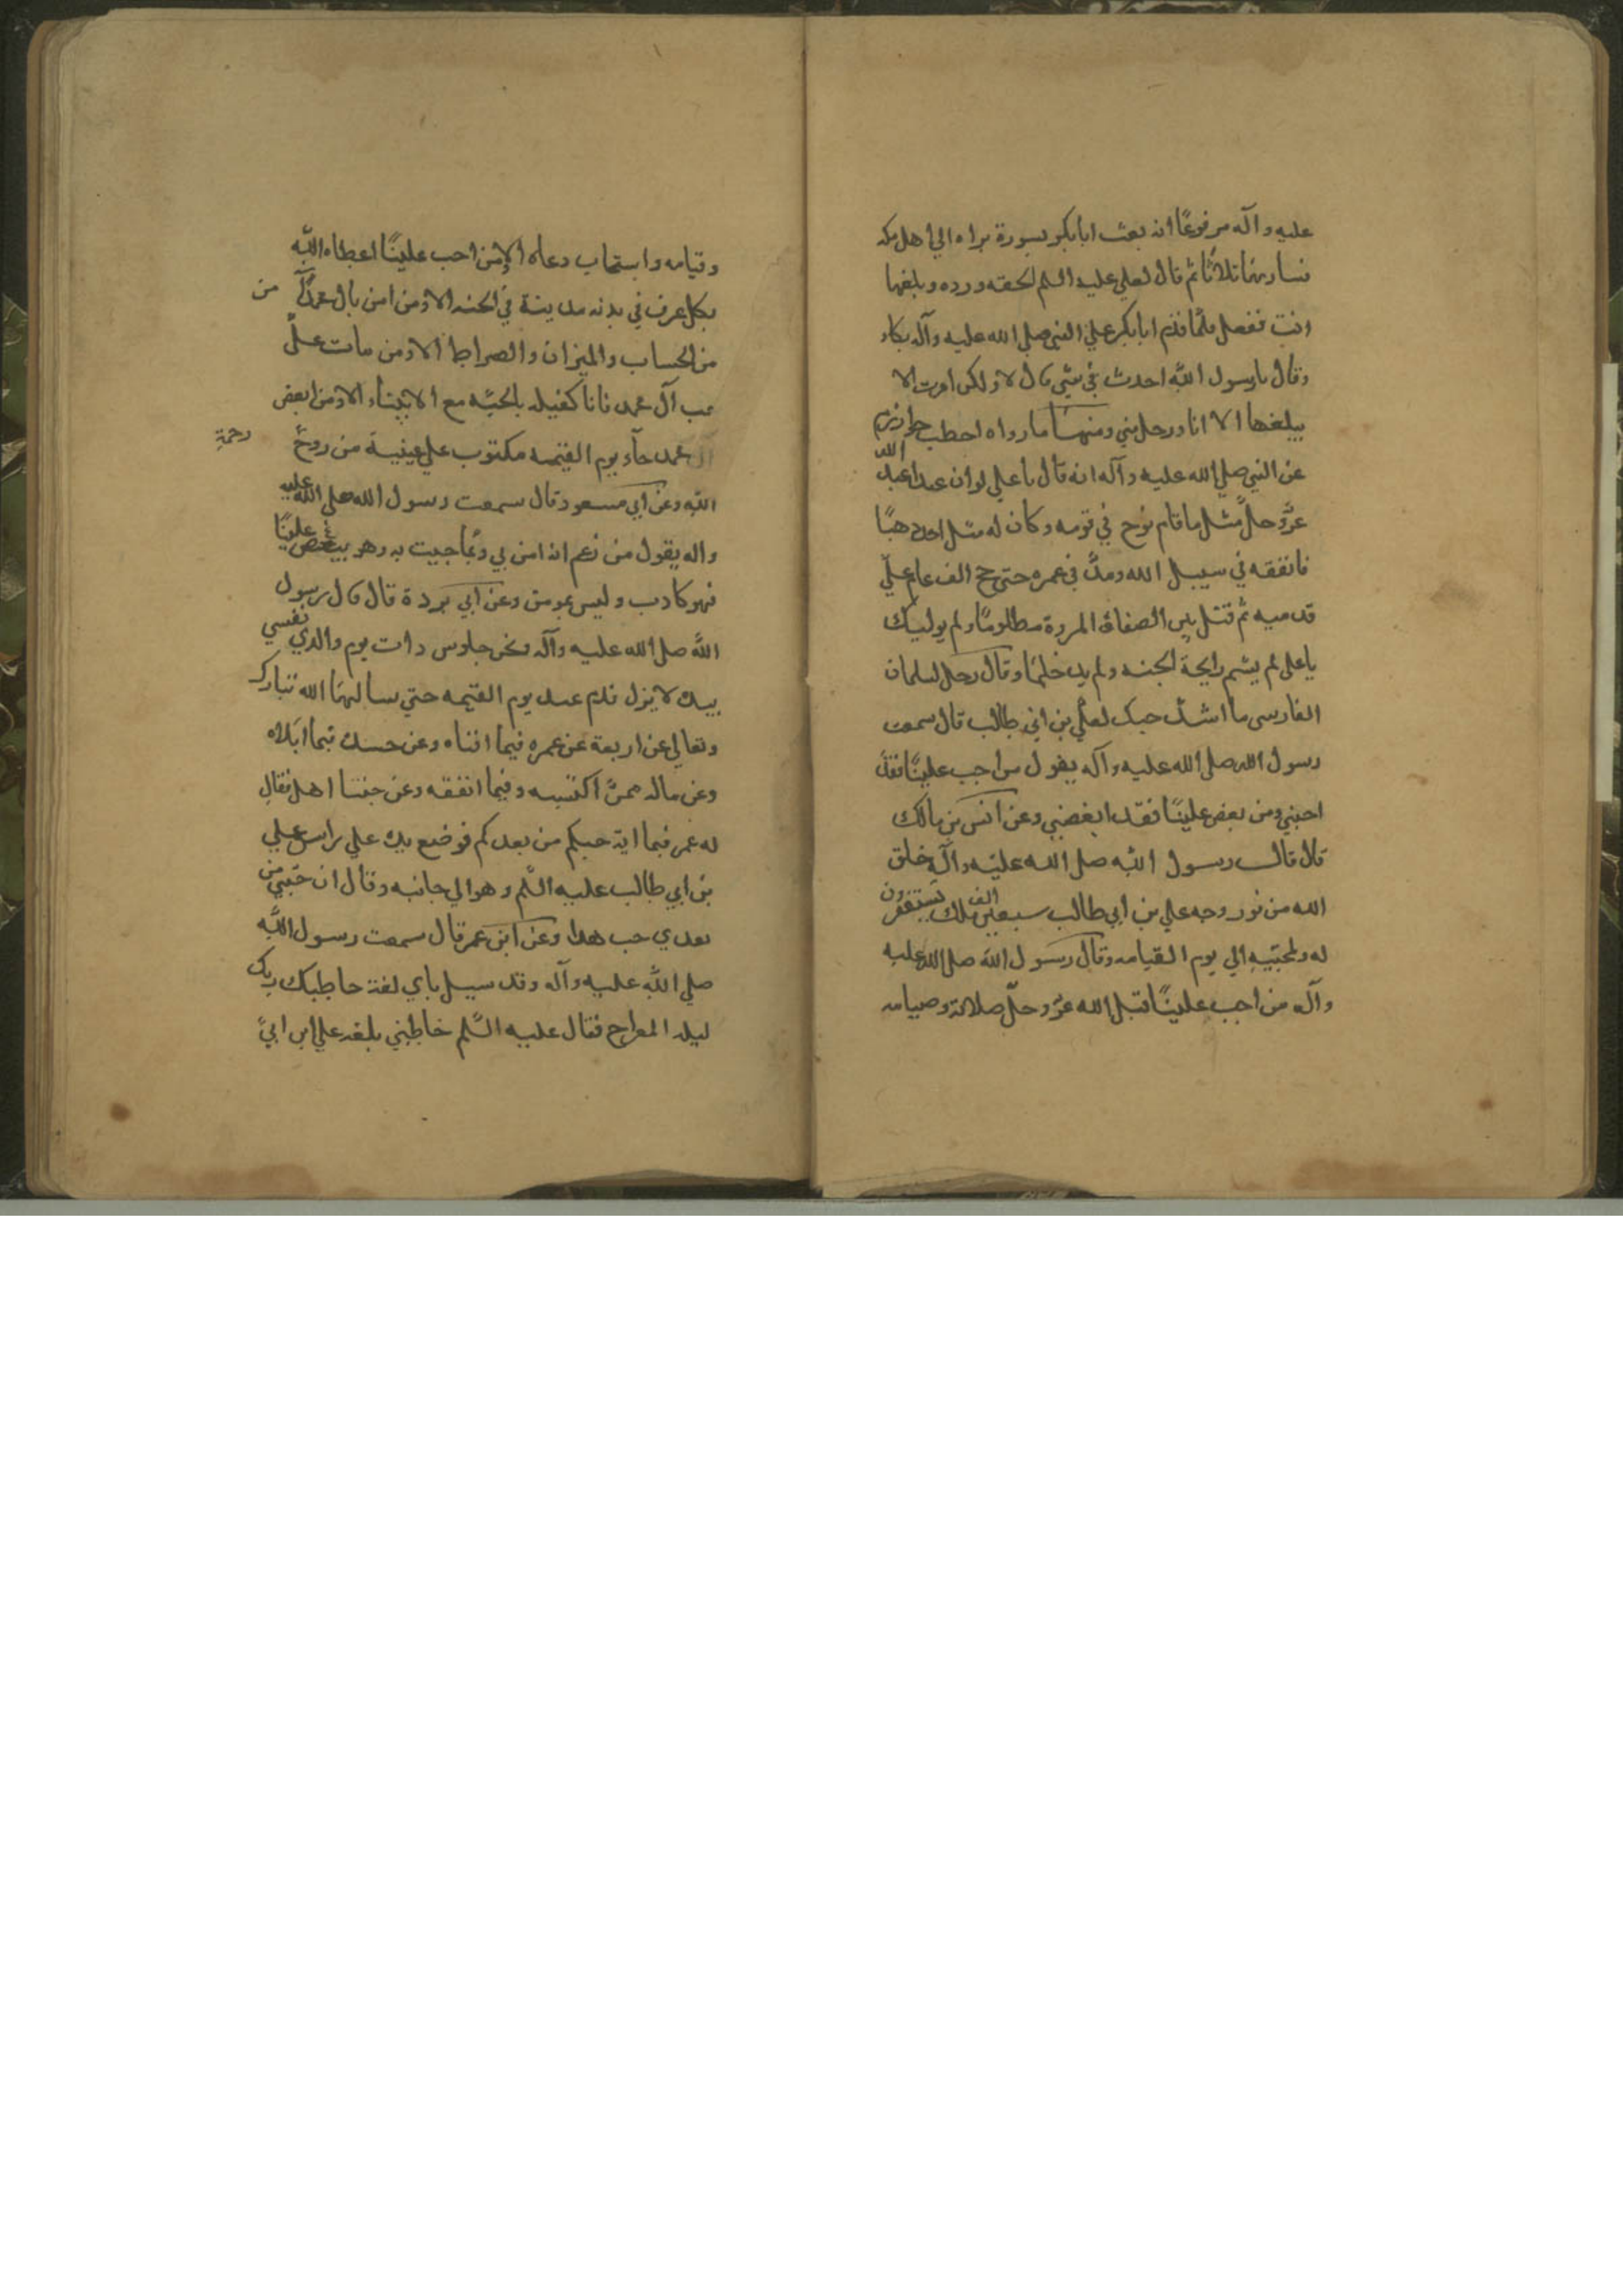 عليه وآله مرفوعًا انه بعث ابابكر بسورة براه الي اهل مكه
فسار بها ثلاثًا ثم قال لعلي عليه السلم الحقه ورده وبلغها
انت ففعل فلما قدم ابابكر علي النبي صلي الله عليه وآله بكاء
وقال يارسول الله احدث في شي قال لا ولكن امرت الا
يبلغها الا انا ورجل مني ومنها ما رواه اخطب خوارزم
عن النبي صلي الله عليه وآله انه قال يا علي لو ان عبدا عبد الله
عزّ وجلّ مثل ما قام نوح في قومه وكان له مثل احد ذهبًا
فانفقه في سبيل الله ومدّ في عمره حتي حج الف عام علي
قدميه ثم قتل بين الصفا و المروة مظلومًا ولم يوليك
يا علي لم يشم رايحة الجنه ولم يدخلها وقال رجل لسلمان
الفارسي ما اشدّ حبك لعلي بن ابي طالب قال سمعت
رسول الله صلي الله عليه وآله يقول من احب عليًّا فقد
احبني ومن بغض عليًّا فقد ابغضني وعن انس بن مالك
قال قال رسول الله صلي الله عليه وآله خلق
الله من نور وجه علي بن ابي طالب سبعين الف ملك يستغفرون
له ولمحبّيه الي يوم القيامه وقال رسول الله صلي الله عليه
وآله من احب عليًّا قبل الله عزّ وجلّ صلاته وصيامه
وقيامه واستجاب دعاه الا ومن احب عليًّا اعطاه الله
بكل عرق في بدنه مدينة في الجنه الا ومن امن بال محمد من
من الحساب والميزان والصراط الا ومن مات علي
حب آل محمد فانا كفيله بالجنّه مع الانبياء الا ومن ابغض
آل محمد جآء يوم القيمه مكتوب علي عينيه من روح رحمة
الله وعن ابي مسعود قال سمعت رسول الله صلي الله عليه
واله يقول من زعم انه امن بي وبما جيت به وهو يبغض عليًّا
فهو كادب وليس بمومن وعن ابي بردة قال قال رسول
الله صلي الله عليه وآله ونحن جلوس دات يوم والدي نفسي
بيده لا يزل قدم عبد يوم القيمه حتي يسالهما الله تبارك
وتعالي عن اربعة عن عمره فيما افناه وعن جسده فيما ابلاه
وعن ماله ممّ اكتسبه وفيما انفقه وعن حبنا اهل فقال
له عمر فما اية حبكم من بعدكم فوضع يده علي راس علي
بن ابي طالب عليه السّلم وهو الي جانبه وقال ان حبّي من
بعدي حب هدا وعن ابن عمر قال سمعت رسول اللّه
صلي اللّه عليه وآله وقد سيل باي لغة خاطبك ربك
ليله المعراج فقال عليه السّلم خاطبني بلغه علي ابن ابي